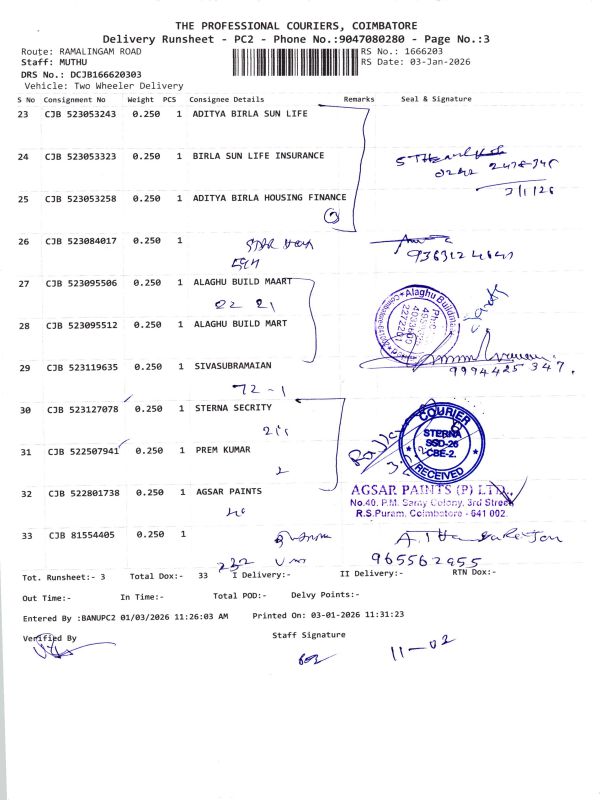 THE PROFESSIONAL COURIERS, COIMBATORE
Delivery Runsheet - PC2 - Phone No.:9047080280 - Page No.:3
Route: RAMALINGAM ROAD
RS No.: 1666203
Staff: MUTHU
RS Date: 03-Jan-2026
DRS No.: DCJB166620303
Vehicle: Two Wheeler Delivery
S No Consignment No Weight PCS Consignee Details Remarks Seal & Signature
23 CJB 523053243 0.250 1 ADITYA BIRLA SUN LIFE
24 CJB 523053323 0.250 1 BIRLA SUN LIFE INSURANCE
3/1/26
25 CJB 523053258 0.250 1 ADITYA BIRLA HOUSING FINANCE
26 CJB 523084017 0.250 1
27 CJB 523095506 0.250 1 ALAGHU BUILD MAART
28 CJB 523095512 0.250 1 ALAGHU BUILD MART
29 CJB 523119635 0.250 1 SIVASUBRAMAIAN
9994425 347.
72-1
30 CJB 523127078 0.250 1 STERNA SECRITY
COURIER
STERNA
SSO-26
CBE-2.
RECEIVED
31 CJB 522507941 0.250 1 PREM KUMAR
2
32 CJB 522801738 0.250 1 AGSAR PAINTS
AGSAR PAINTS (P) LTD.,
No.40, P.M. Samy Colony, 3rd Street
R.S.Puram, Coimbatore - 641 002.
33 CJB 81554405 0.250 1
232
965562955
Tot. Runsheet:- 3 Total Dox:- 33 I Delivery:- II Delivery:- RTN Dox:-
Out Time:- In Time:- Total POD:- Delvy Points:-
Entered By :BANUPC2 01/03/2026 11:26:03 AM Printed On: 03-01-2026 11:31:23
Verified By Staff Signature
11-02